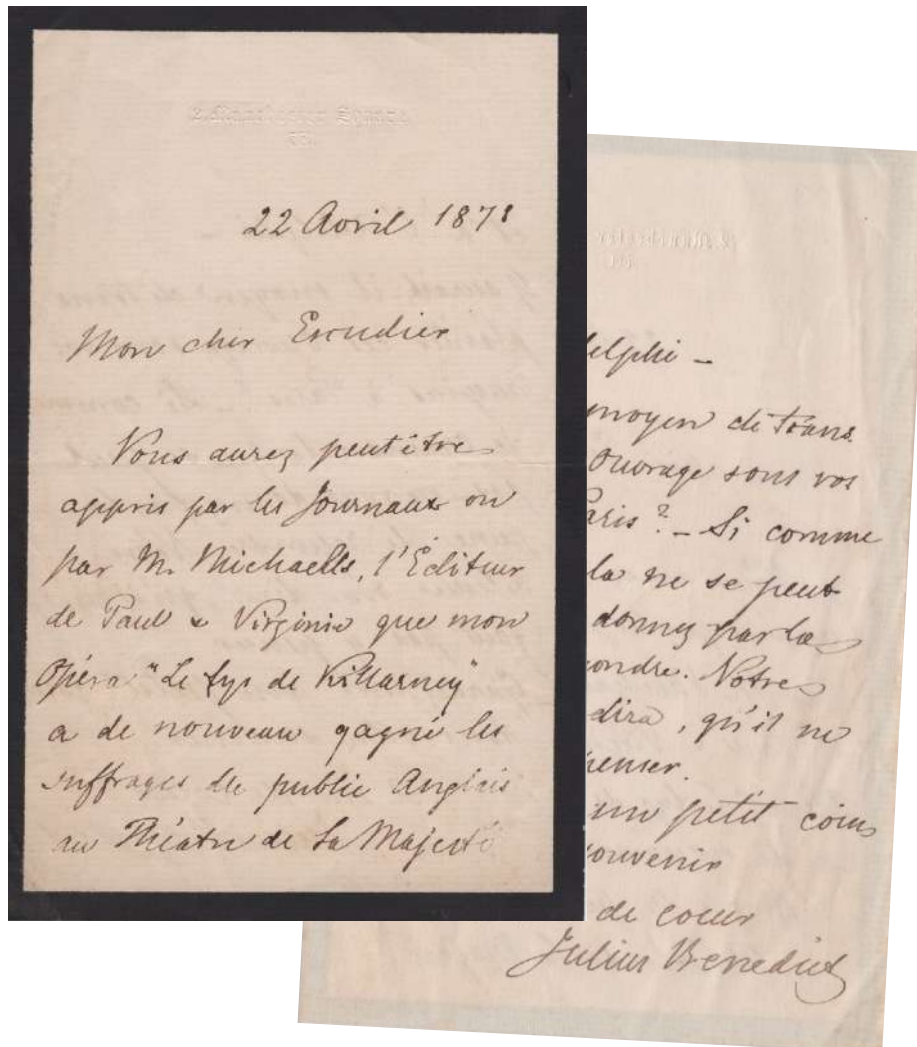 2, Manchester Square
22 Avril 1878
Mon cher Escudier
Vous aurez peutêtre
appris par les Journaux ou
par M. Michaells, l'Editeur
de Paul & Virginie que mon
Opéra "Le Lys de Killarney"
a de nouveau gagné les
suffrages du public Anglais
au Théatre de Sa Majesté
delphi –
moyen de trans
ouvrage sous vos
Paris? – Si comme
la ne se peut
donnez par la
ondre. Notre
dira, qu'il ne
penser.
un petit coin
souvenir
de coeur
Julius Benedict